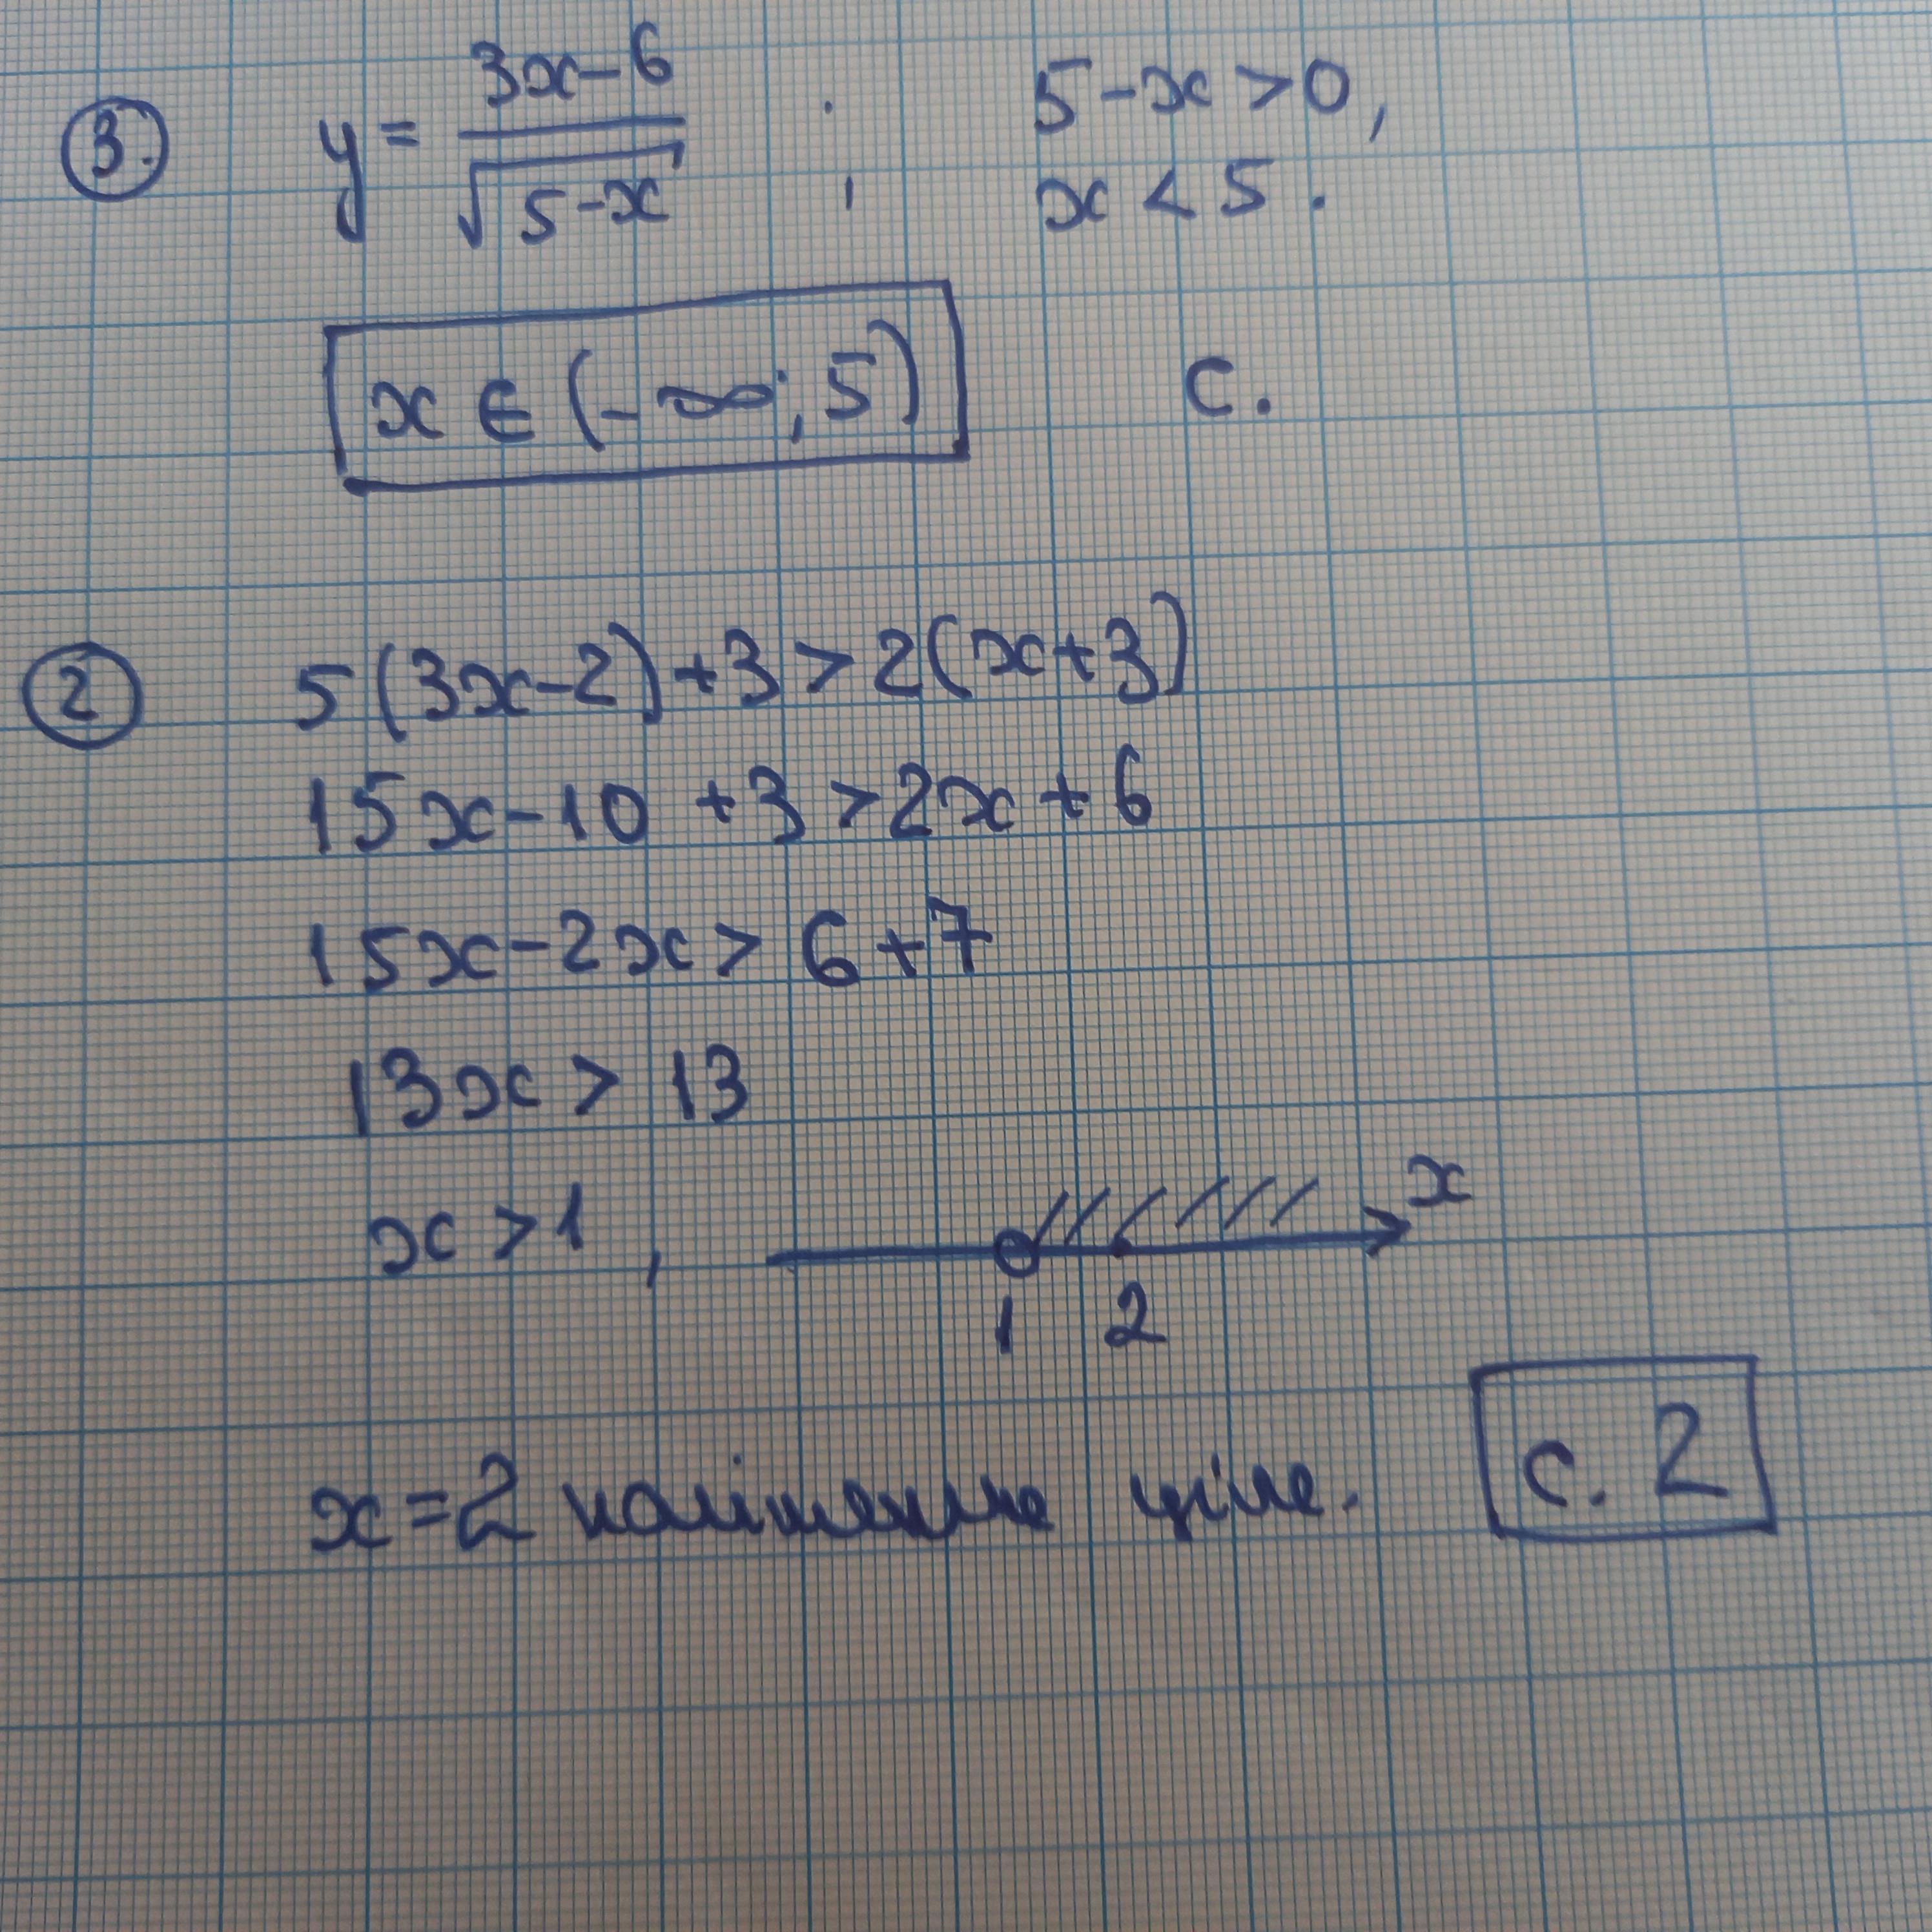 3. y = (3x-6)/√(5-x) ; 5-x>0,
x < 5.
x ∈ (-∞; 5) c.
2 5(3x-2)+3>2(x+3)
15x-10 +3>2x+6
15x-2x> 6+7
13x> 13
x>1, x
1 2
x=2 найменше ціле. c. 2